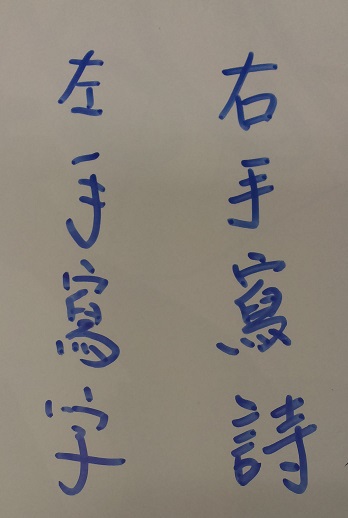 右手寫詩
左手寫字